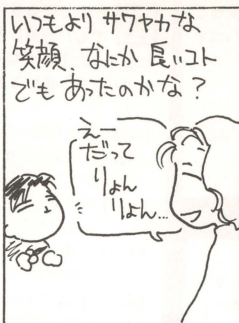 いつもより サワヤカな
笑顔、なにか 良いコト
でも あったのかな?
えー
だって
りょん
りょん…